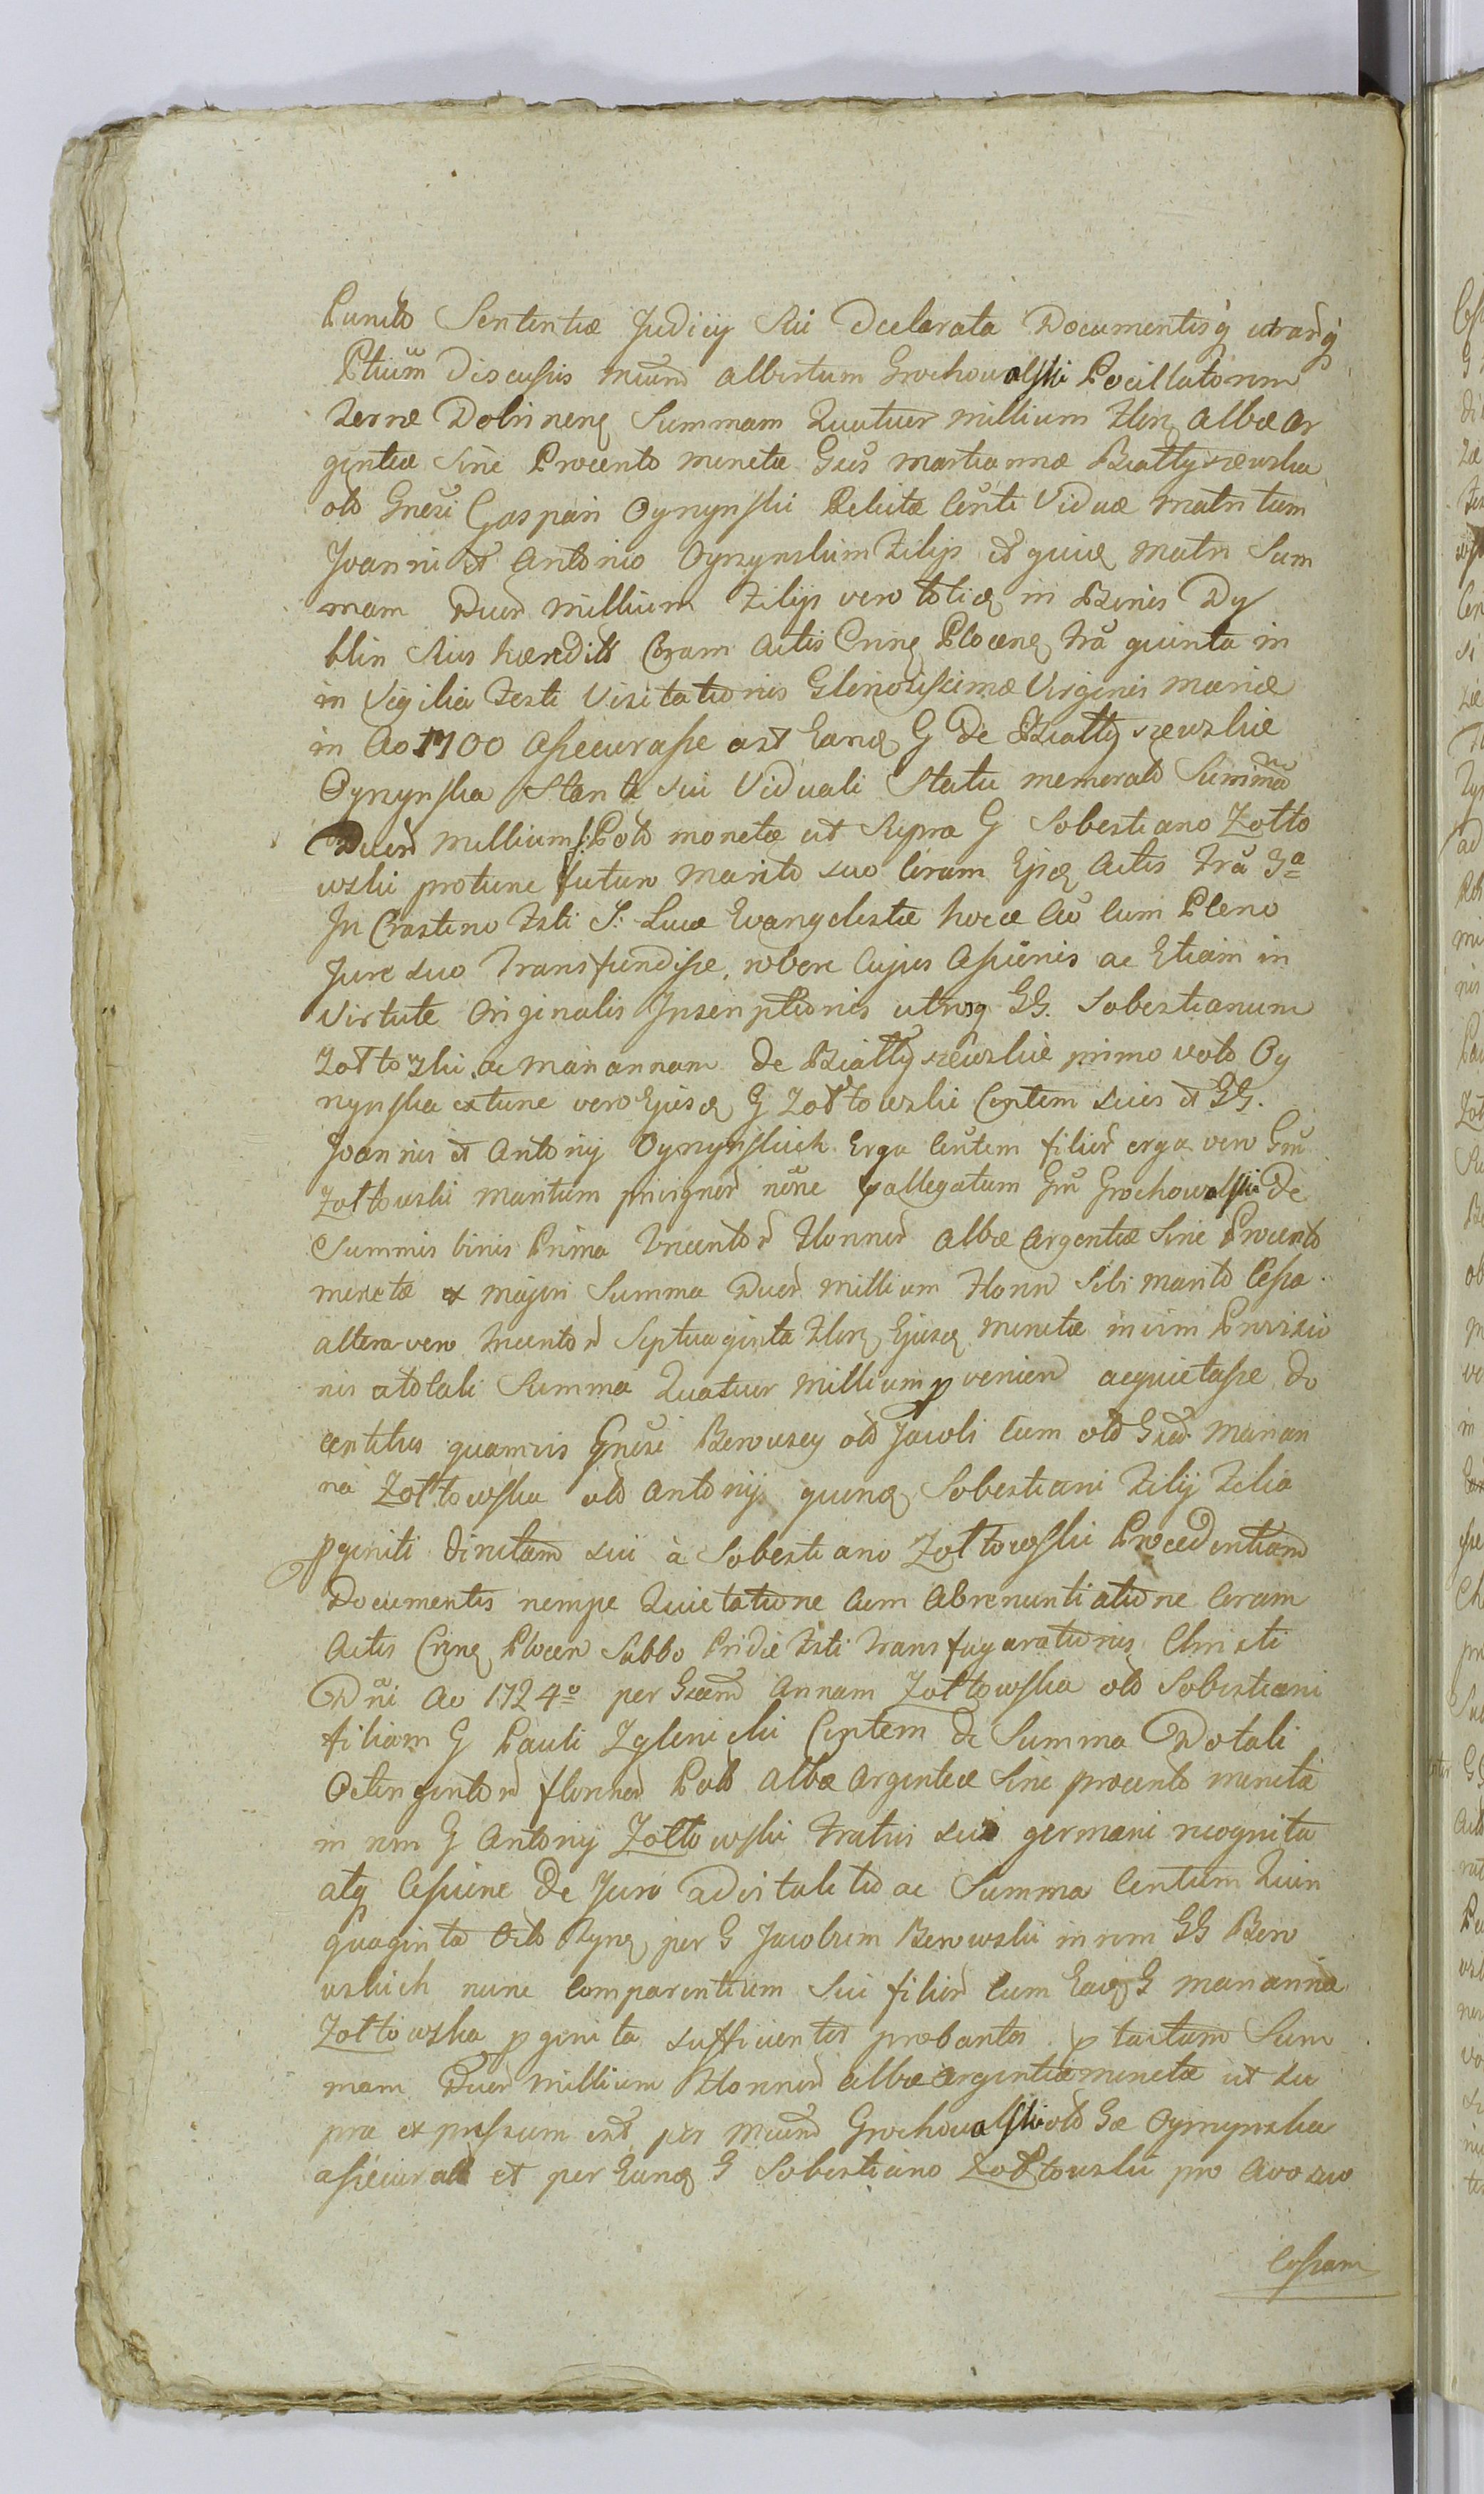 Puncto Sententiæ Judicij Sui Declarata Documentisq utrarq
Ptium Discussis Mcum Albertum Grochowalski Pocillatorem
Terræ Dobrinens Summam Quatuor Millium Flor Albæ Ar
genteæ Sine Procento Monetæ Gsæ Mariannæ Białłyszewska
olo Gnesi Gaspari Oynynski Relictæ Cents Viduæ Matri tum
Joanni et Antonio Oynynskim Filijs et quide Matri Sum
mam Duor Millium Filijs vero totid in Bonis Dy
blin Suis hæredits Coram Actis Crins Plocens Fra quinta in
in Vigilia Festi Visitationis Gloriosissimæ Virginis Mariæ
in Ao 1700 Assecurasse ast Eand G De Białłyszewskie
Oynynska Stante sui Viduali Statu memorato Summa
Duor Millium Polo monetæ ut Supra G Sobestiano Zołto
wski protunc futuro Marito suo Coram Ijsd Actis Fra 3a
In Crastino Fsti S. Lucæ Evangelistæ hocce Ao Cum Pleno
Jure suo Transfundisse, robore Cujus Assionis ac Etiam in
Virtute Originalis Inscriptionis utrosq GG. Sobestianum
Zołtowski ac Mariannam De Białłyszewskie primo voto Oy
nynska extunc vero Ejusd G Zołtowski Coptem suis et GG.
Joannis et Antonij Oynynskich Erga Centem filior erga vero Gm
Zołtowski Maritum privignor nõne p allegatum Gm Grochowalski De
Summis binis Prima Trecentor Florenor Albæ Argenteæ Sine Procento
monetæ ex majori Summa Duor Millium Floren Sibi Marito Cessa
altera vero Trecentor Septuaginta Flor Ejusd Monetæ in vim Provisio
nis a totali Summa Quatuor Millium pvenien acquietasse do
centibus quamvis Gnesi Berowscy olo Jacobi cum olo Gsa Marian
na Zołtowska olo Antonij quond Sobestiani Filij Filia
pgeniti directam sui à Sobestiano Zołtowski Procedentiam
Documentis nempe Quietatione Cum Abrenuntiatione Coram
Actis Crins Plocen Sabbo Pridie Fsti Transfigurationis Christi
Dñi Ao 1724o per Gsam Annam Zołtowska olo Sobestiani
filiam G Pauli Zglenicki Coptem De Summa Dotali
Octingentor florenor Polo Albæ Argenteæ Sine procento monetæ
in rem G Antonij Zołtowski Fratris sui germani recognita
atq Cessione De Juro advitalitio ac Summa Centum Quin
quaginta Octo Tyns per G Jacobum Berowski in rem GG Bero
wskich nunc Comparentium Sui filior Cum Ead G Marianna
Zołtowska pgenita sufficienter probantes p tactum Sum
mam Duor Millium Florenor Albæ Argenteæ monetæ ut su
pra expressum est per Mcum Grochowalski olo Gæ Oynynska
assecurato et per Eand G Sobestiano Zołtowski pro Avo suo
Cessam